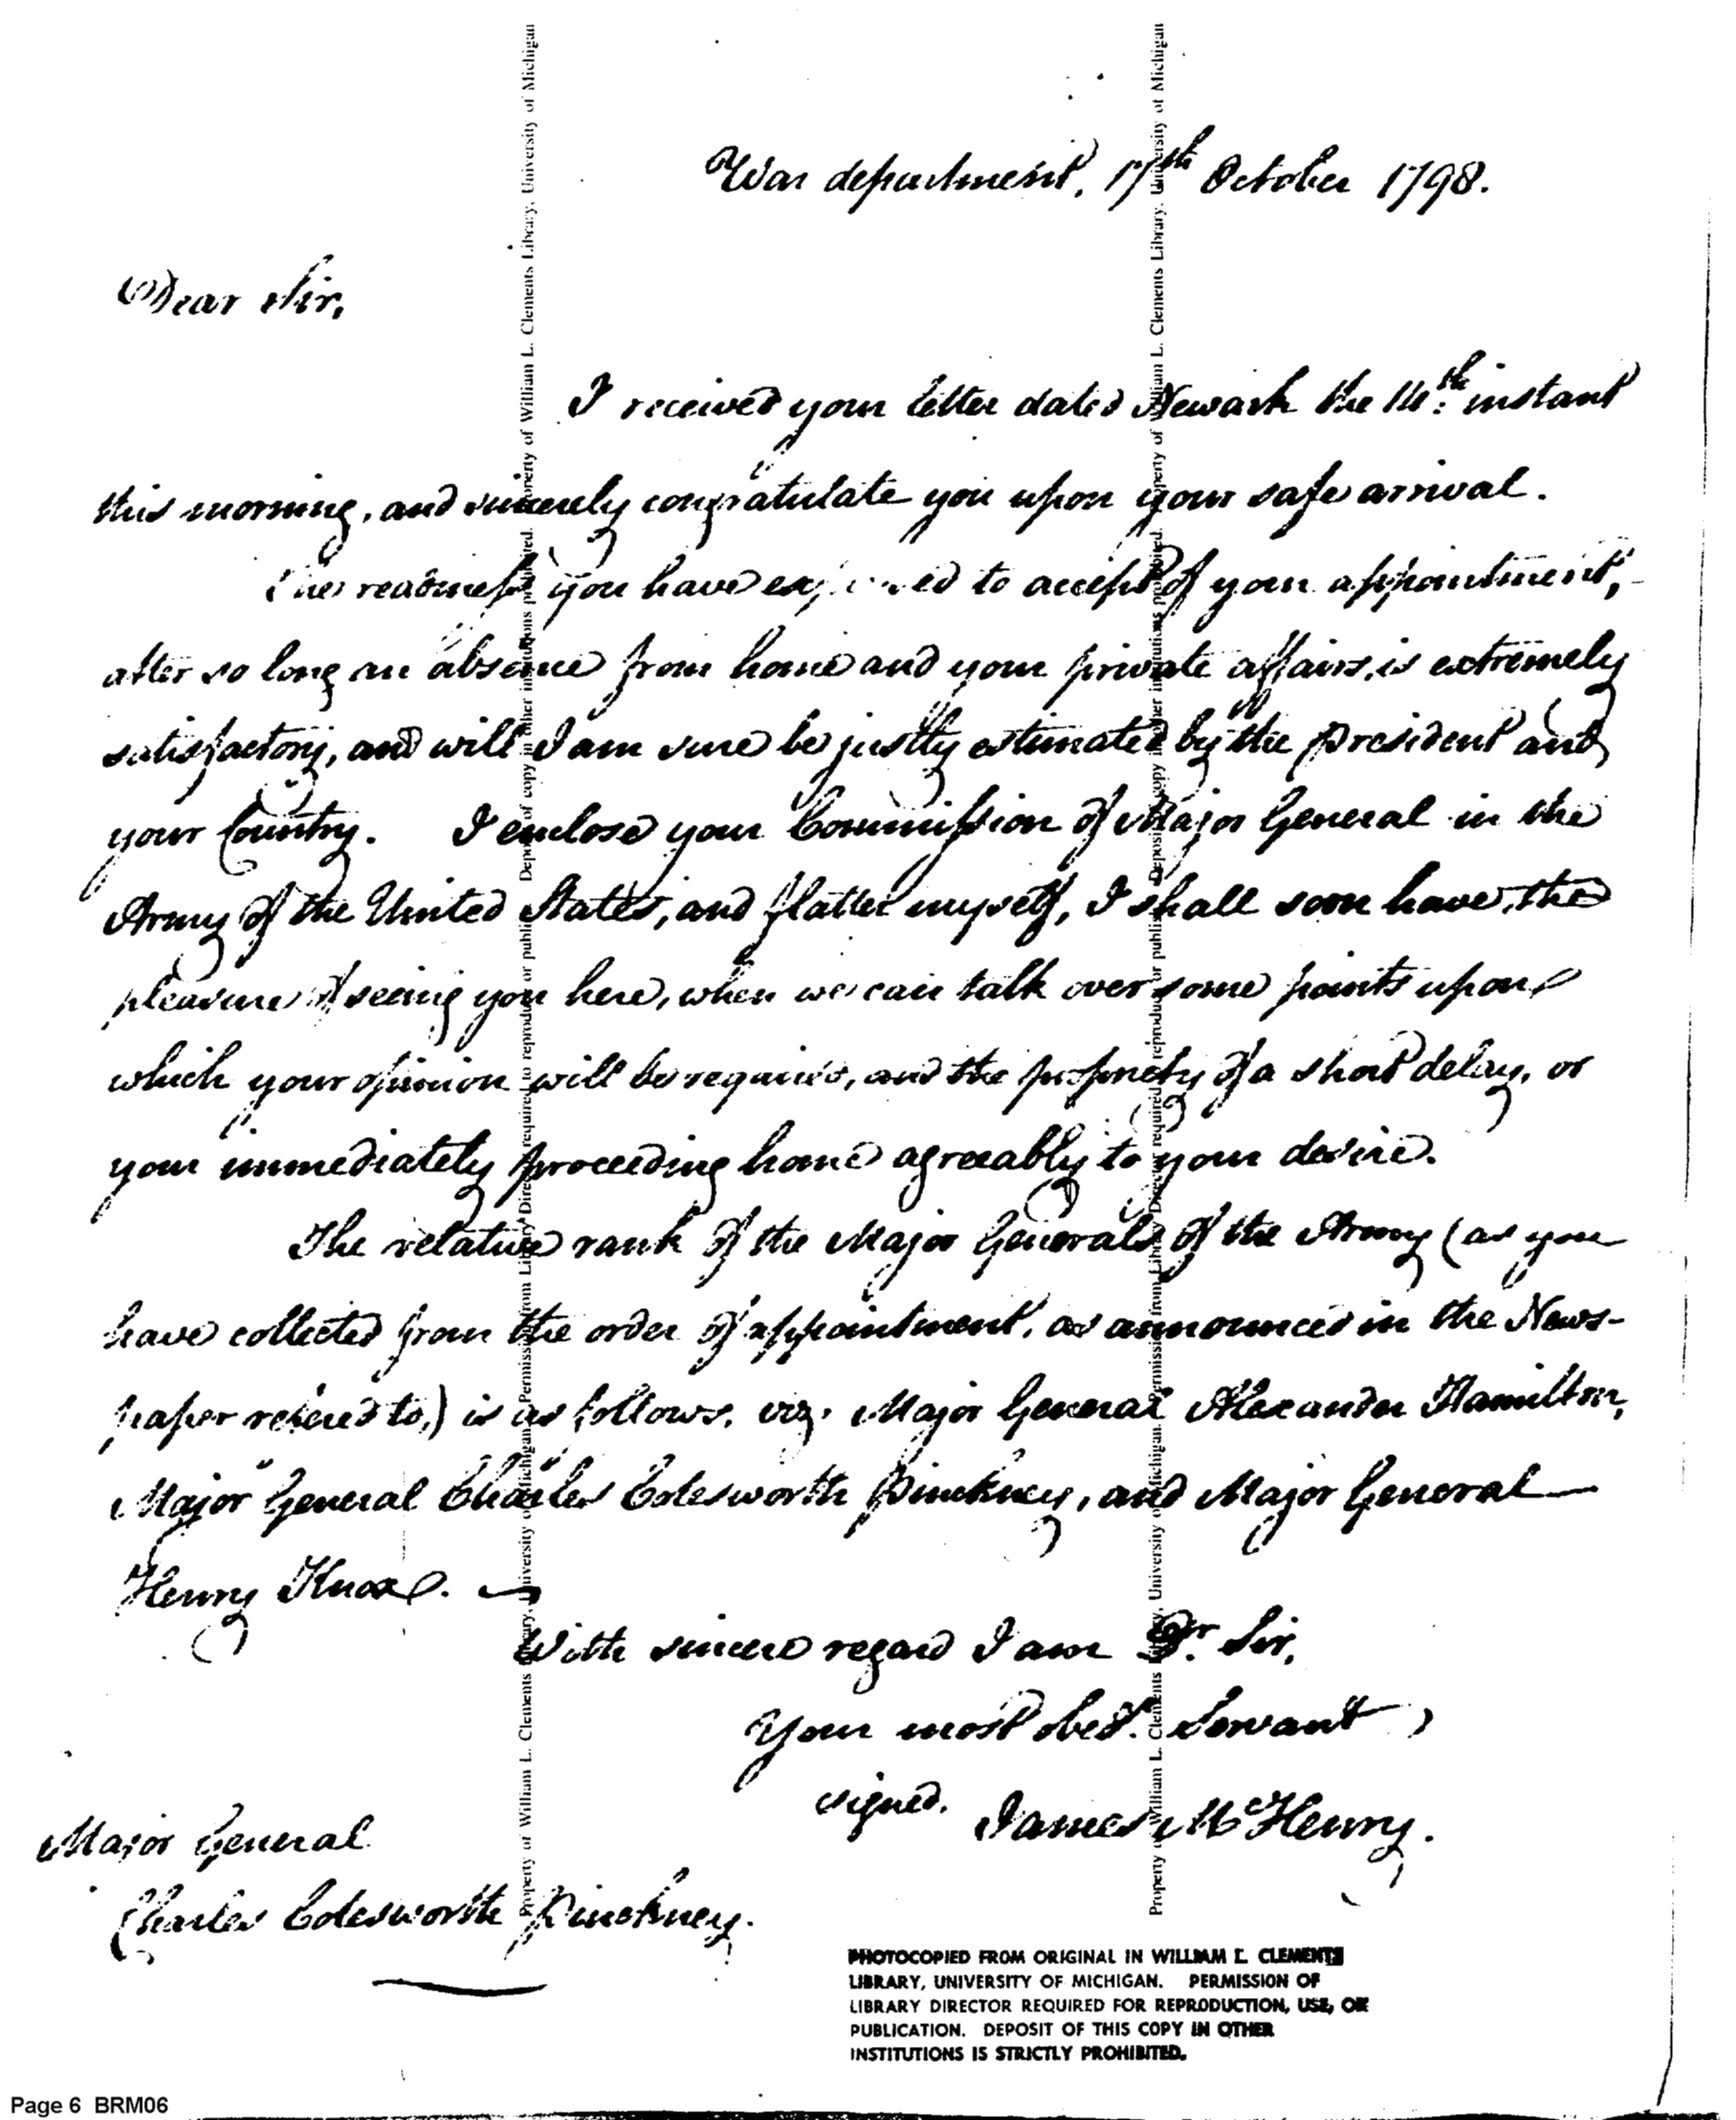 War department, 17th October 1798.
Dear Sir,
I received your letter dated Newark the instant
this morning, and sincerely congratulate you upon your safe arrival.
The readiness you have to accept of your appointment,
after so long an absence from home and your private affairs, is extremely
satisfactory, and will I am sure be justly estimated by the President and
your Country. I enclose your Commission of Major General in the
Army of the United States, and flatter myself, I shall soon have, the
pleasure of seeing you here, when we can talk over some points upon
which your opinion will be required, and the propriety of a short delay, or
your immediately proceeding home agreeably to your desire.
The relative rank of the Major Generals of the Army (as you
have collected from the order of appointment, as announced in the News-
paper refered to,) is as follows. viz. Major General Alexander Hamilton,
Major General Charles Cotesworth Pinckney, and Major General
Henry Knox.
With sincere regard I am Dr. Sir,
Your most obed. Servant
signed. James McHenry.
Major General
Charles Cotesworth Pinckney.
Property of William L. Clements Library, University of Michigan. Permission from Library Director required to reproduce or publish. Deposit of copy in other institutions prohibited.
Property of William L. Clements Library, University of Michigan
Property of William L. Clements Library, University of Michigan. Permission from Library Director required to reproduce or publish. Deposit of copy in other institutions prohibited.
Property of William L. Clements Library, University of Michigan
PHOTOCOPIED FROM ORIGINAL IN WILLIAM L. CLEMENTS
LIBRARY, UNIVERSITY OF MICHIGAN. PERMISSION OF
LIBRARY DIRECTOR REQUIRED FOR REPRODUCTION, USE, OR
PUBLICATION. DEPOSIT OF THIS COPY IN OTHER
INSTITUTIONS IS STRICTLY PROHIBITED.
Page 6 BRM06